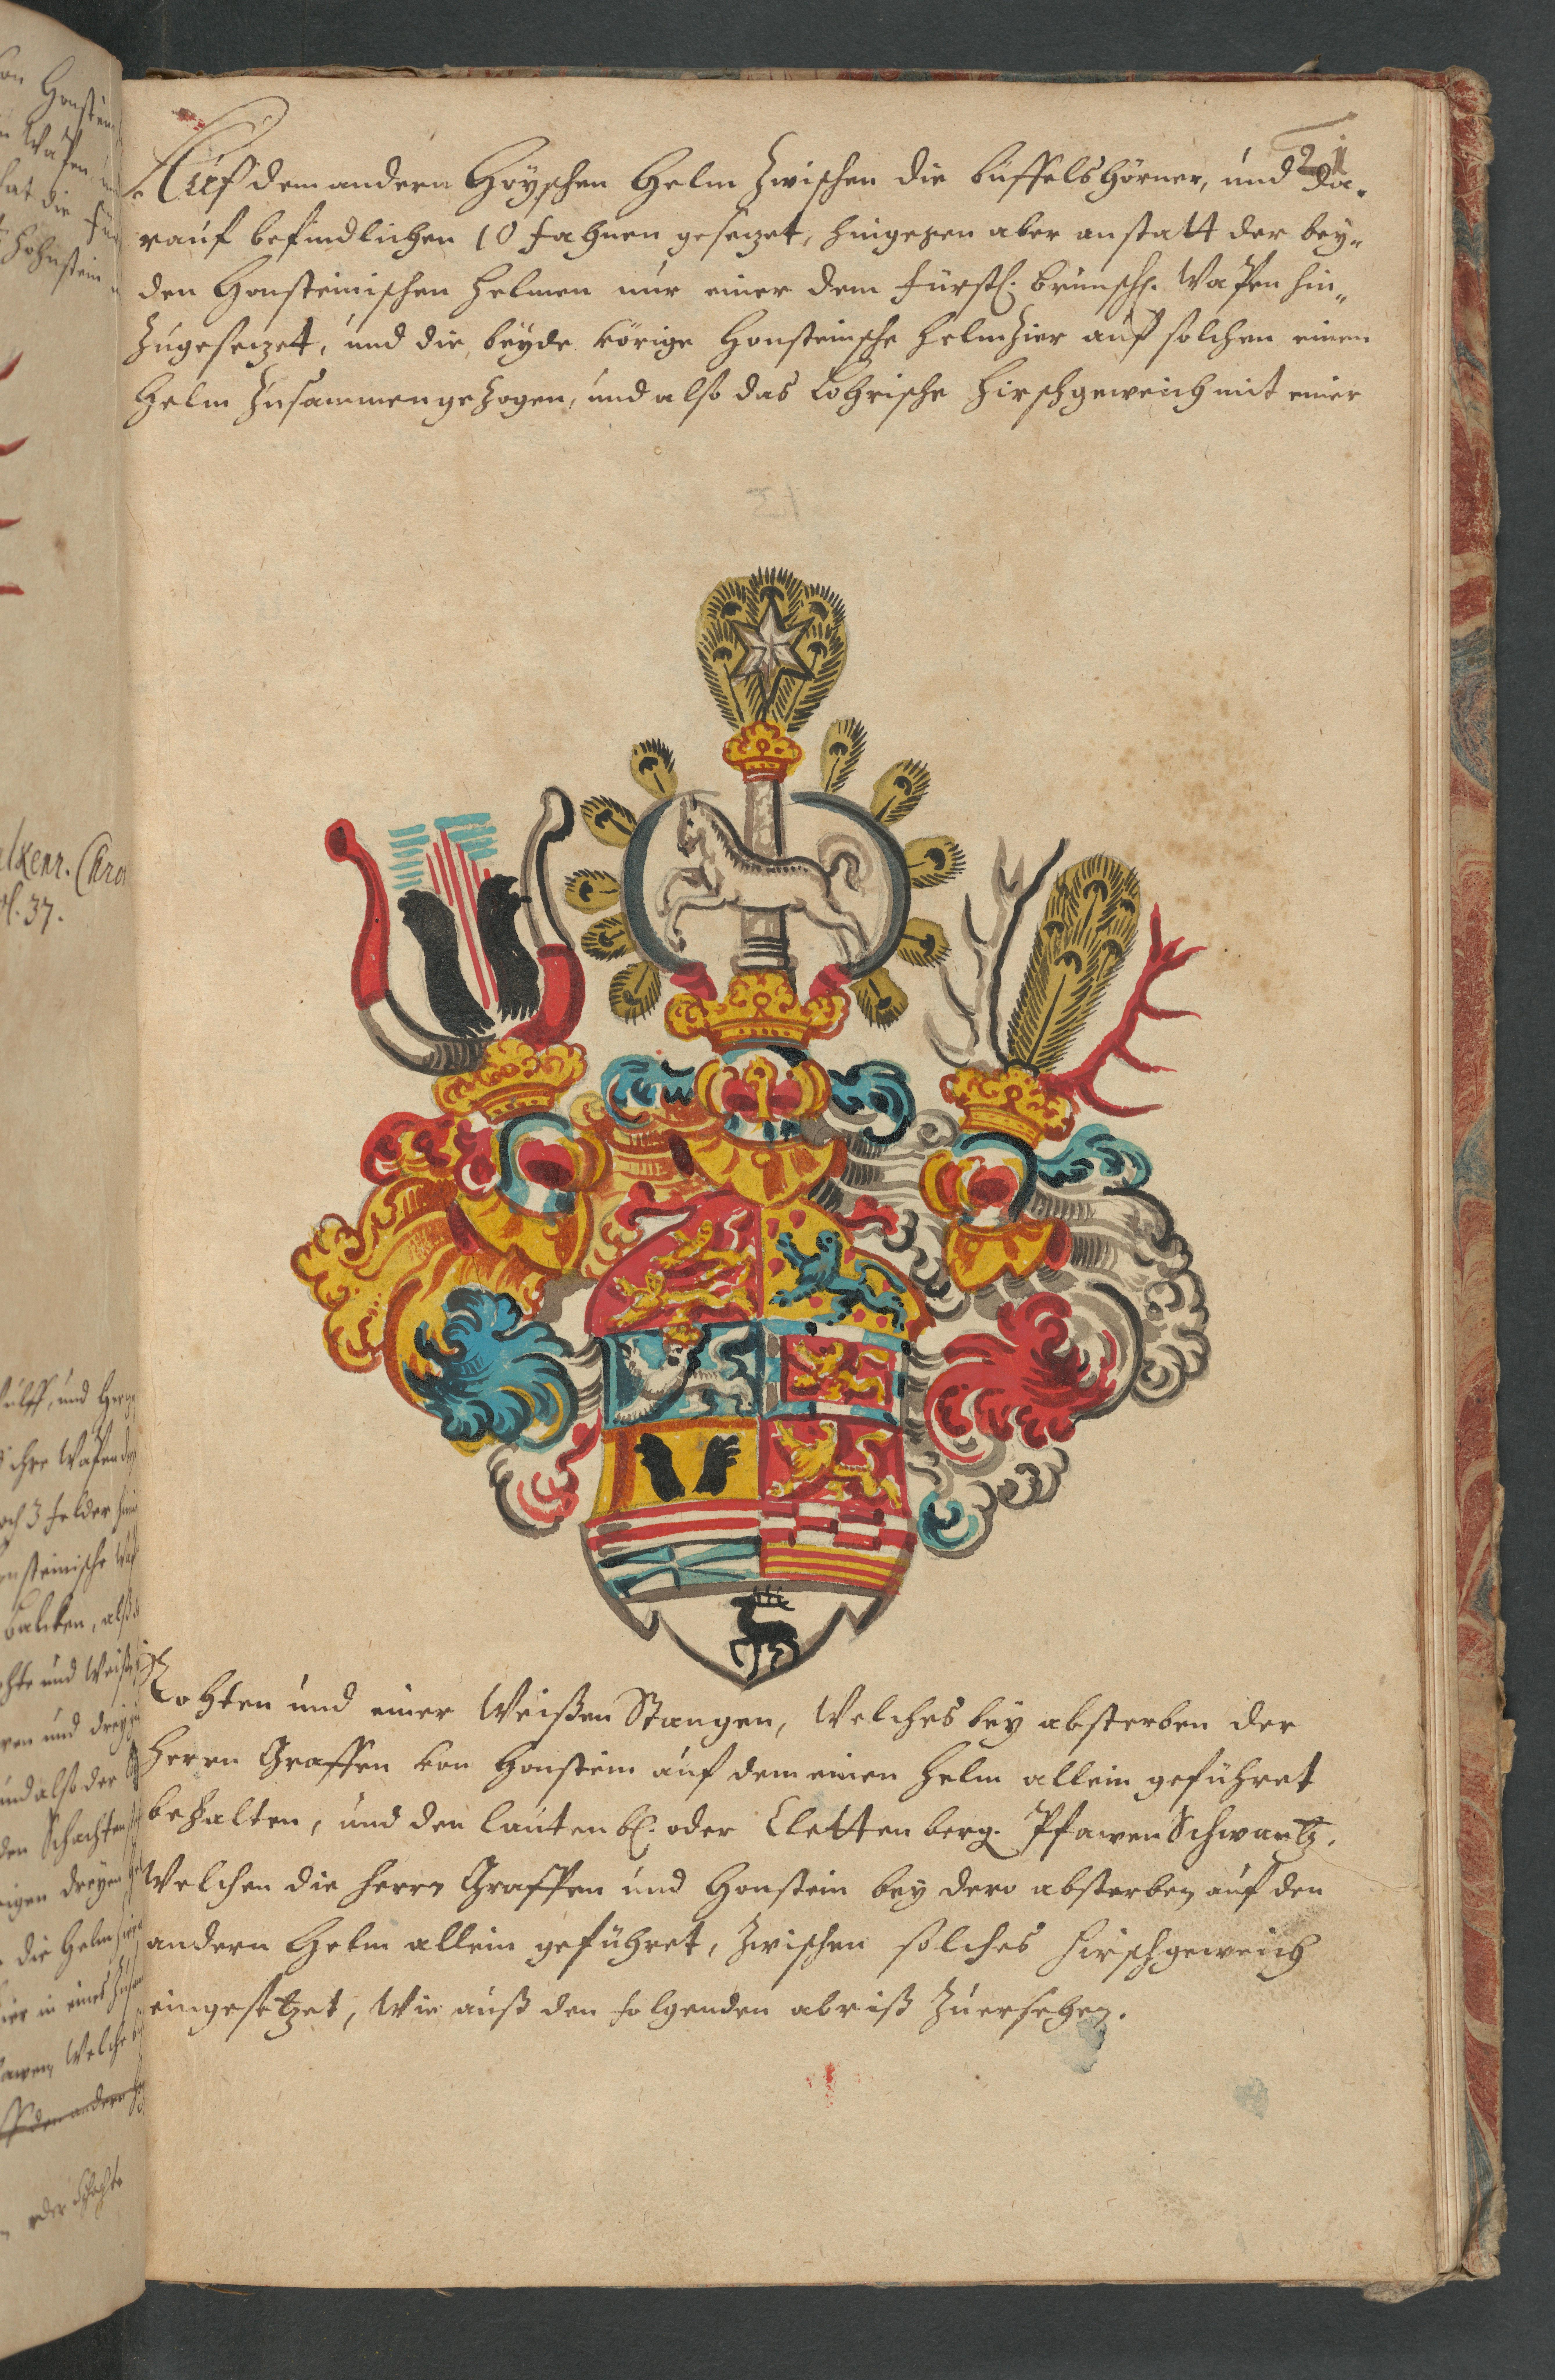 21
Auf dem andern Höyschen Helm zwischen die büffelshörner, und da-
rauf befindlichen 10 fahnen gesezet, hingegen aber anstatt der bey-
den Honsteinischen helmen nur einer dem fürstl. brunsch. Wapen hin-
zugesezet, und die beyde vörige Honsteinsche helmzier auf solchen einen
Helm zusammengezogen, und also das Lohrische Hirschgeweich mit einer
Rohten und einer Weißen Stangen, Welches bey absterben der
Herrn Graffen von Honstein auf dem einen Helm allein geführet
behalten, und den lautenb. oder Clettenberg. Pfawen Schwantz,
Welchen die Herrn Graffen und Honstein bey dero absterben auf den
andern Helm allein geführet, zwischen solches Hirschgeweich
eingesetzet, Wie auß den folgenden abriß zuersehen.
alkenr. Chron
pl. 37.